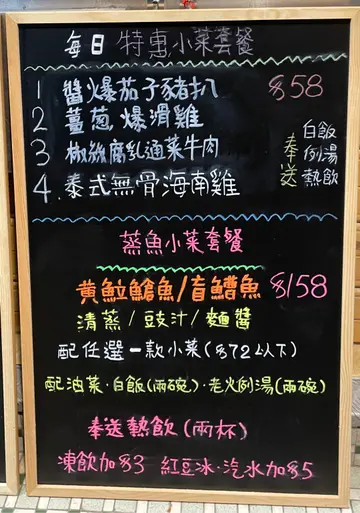 每日特惠小菜套餐
1 醬爆茄子豬扒 $58
2 薑葱爆滑雞
3 椒絲腐乳通菜牛肉
4. 泰式無骨海南雞
奉送 白飯 例湯 熱飲
蒸魚小菜套餐
黃鱲鱠魚/盲鰽魚 $158
清蒸/豉汁/麵醬
配任選一款小菜($72以下)
配油菜·白飯(兩碗)·老火例湯(兩碗)
奉送熱飲(兩杯)
凍飲加$3 紅豆冰·汽水加$5